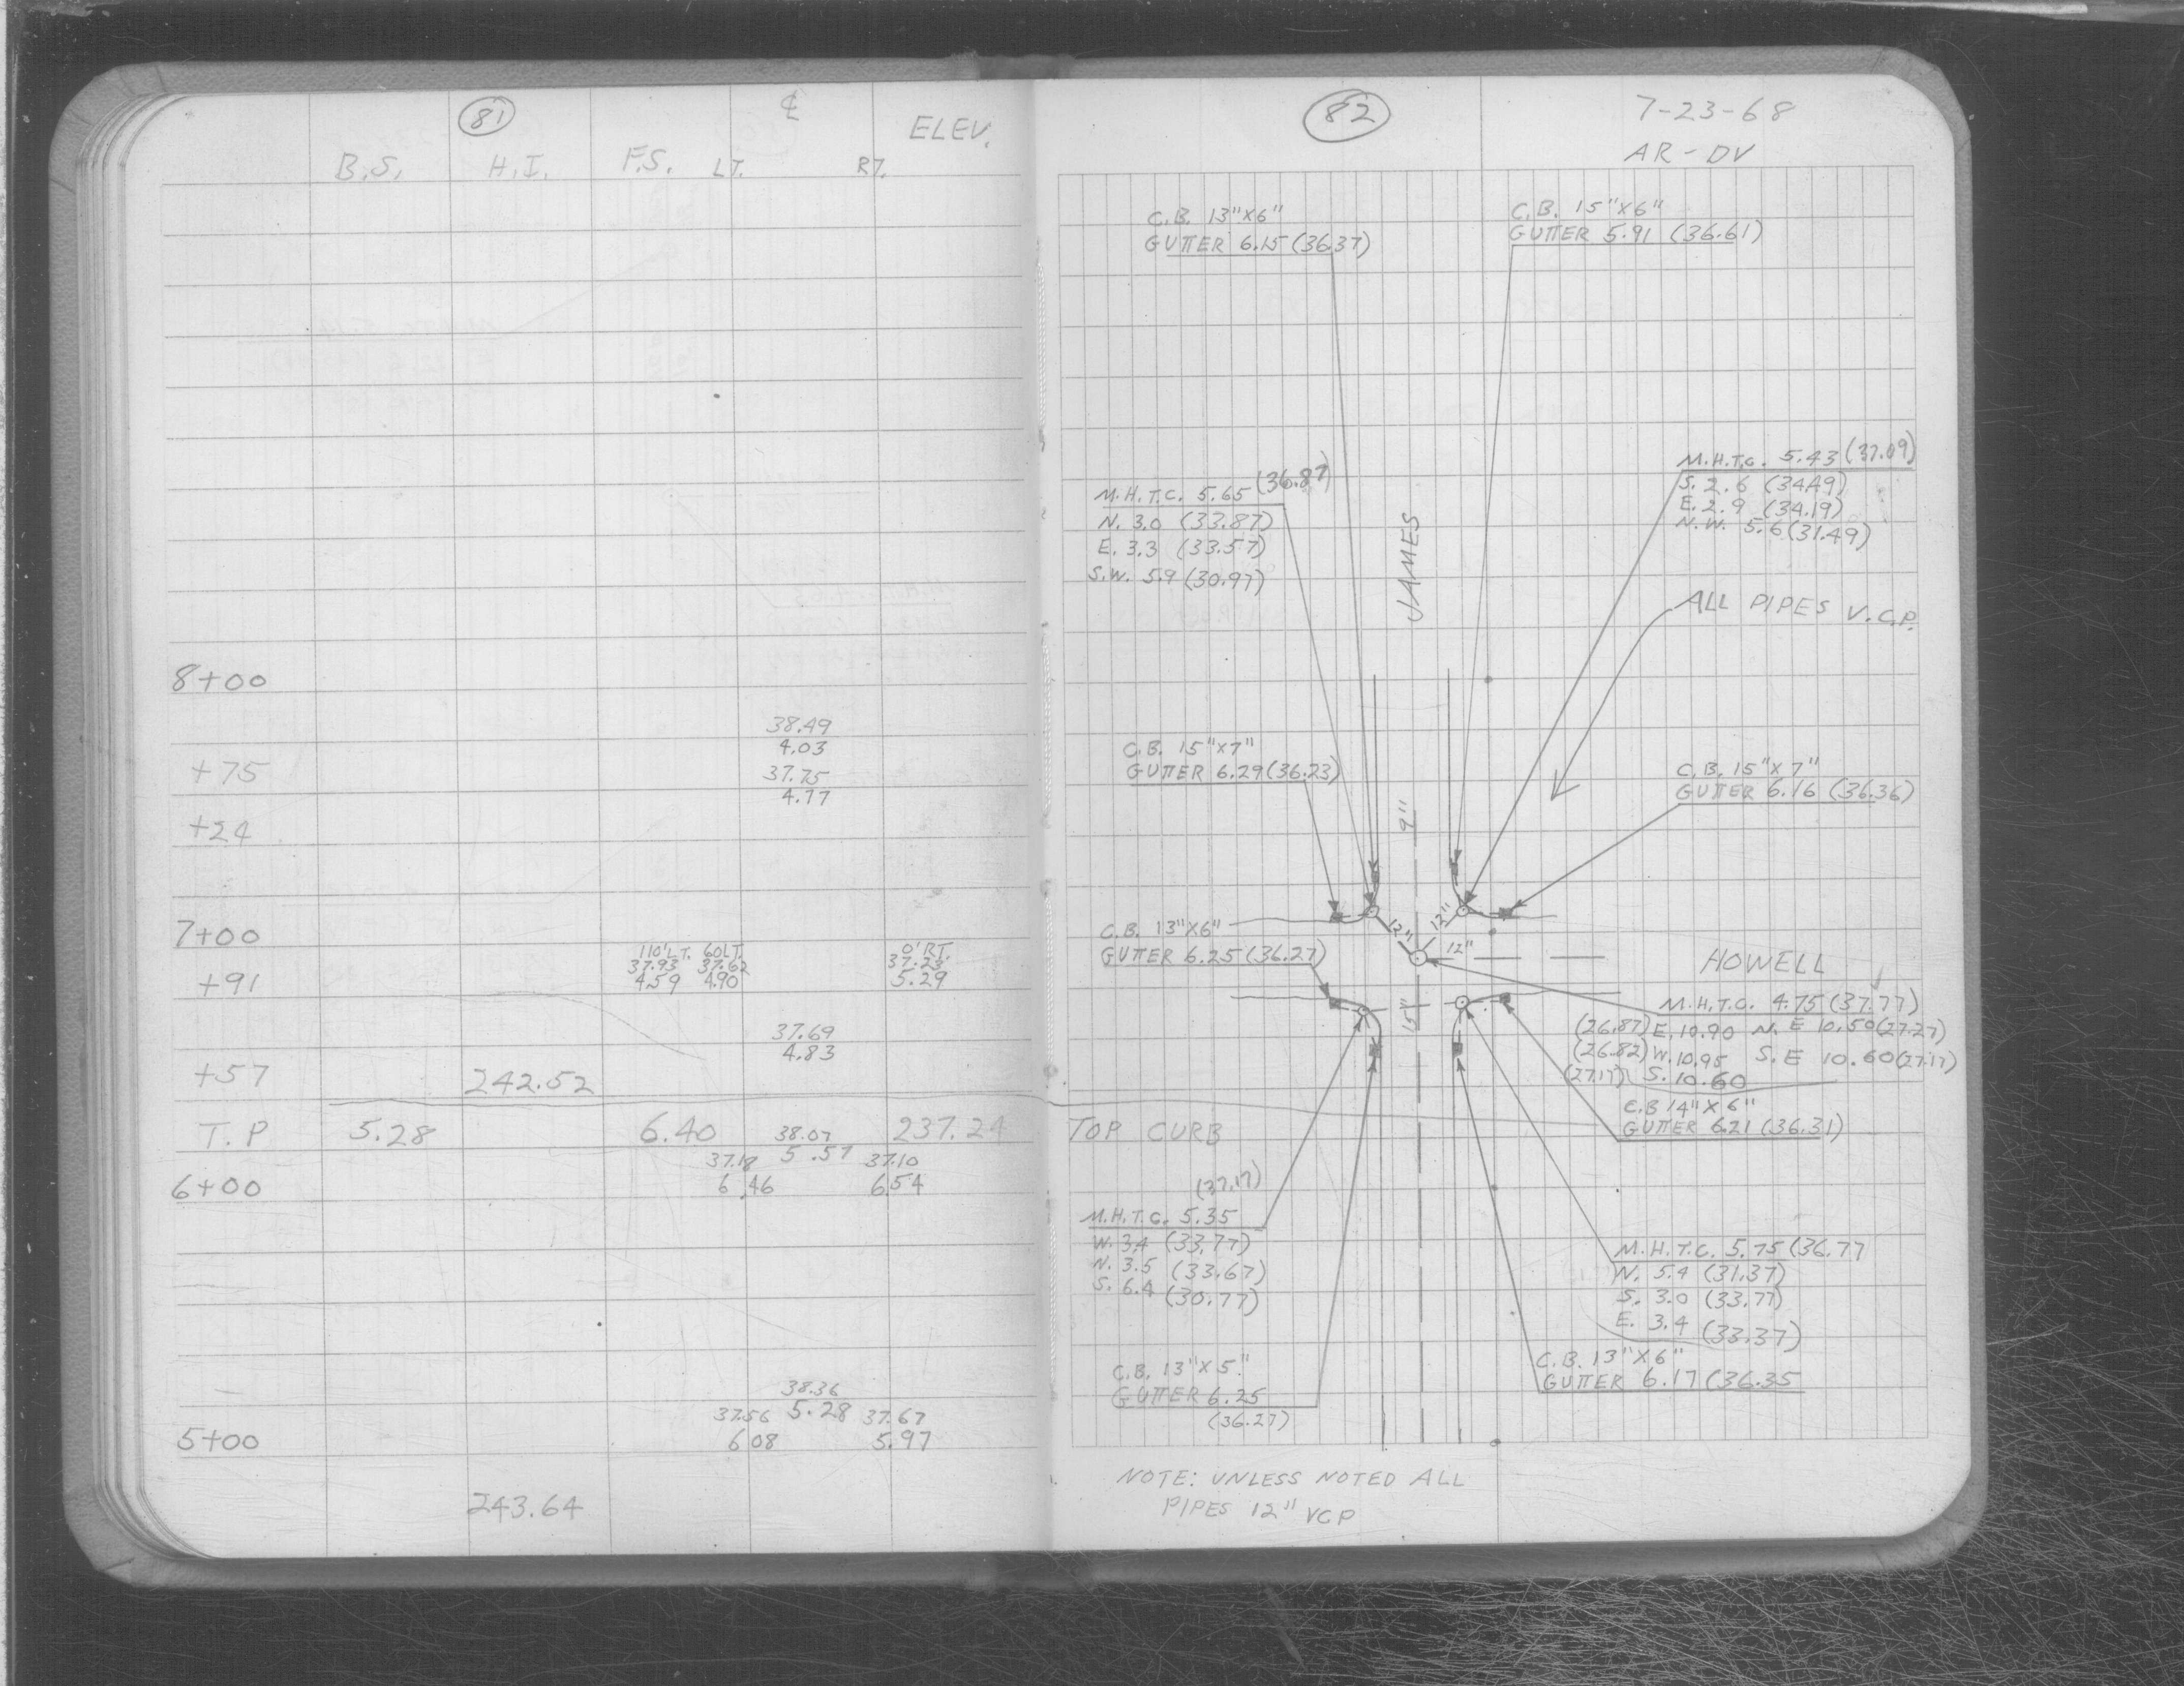 81
℄
ELEV.
B.S. H.I. F.S. LT. RT.
8+00
38.49
4.03
+75
37.75
4.77
+24
7+00
110'LT. 60LT. 0'RT.
37.93 37.62 37.23
+91 4.59 4.90 5.29
37.69
4.83
+57 242.52
T.P 5.28 6.40 38.07 237.24
37.18 5.57 37.10
6+00 6.46 6.54
38.36
37.56 5.28 37.67
5+00 6.08 5.97
243.64
82
7-23-68
AR-DV
C.B. 13"X6"
GUTTER 6.15 (36.37)
C.B. 15"X6"
GUTTER 5.91 (36.61)
M.H.T.C. 5.65 (36.87)
N. 3.0 (33.87)
E. 3.3 (33.57)
S.W. 5.9 (30.97)
JAMES
M.H.T.C. 5.43 (37.09)
S. 2.6 (34.49)
E. 2.9 (34.19)
N.W. 5.6 (31.49)
ALL PIPES V.C.P.
C.B. 15"X7"
GUTTER 6.29 (36.23)
C.B. 15"X7"
GUTTER 6.16 (36.36)
9"
C.B. 13"X6"
GUTTER 6.25 (36.27)
12" 12" 12"
15"
HOWELL
M.H.T.C. 4.75 (37.77)
(26.87) E. 10.90 N.E 10.50 (27.27)
(26.82) W. 10.95 S.E 10.60 (27.17)
(27.17) S. 10.60
C.B 14"X6"
GUTTER 6.21 (36.31)
TOP CURB
(37.17)
M.H.T.C. 5.35
W. 3.4 (33.77)
N. 3.5 (33.67)
S. 6.4 (30.77)
M.H.T.C. 5.75 (36.77
N. 5.4 (31.37)
S. 3.0 (33.77)
E. 3.4 (33.37)
C.B. 13"X5"
GUTTER 6.25
(36.27)
C.B. 13"X6"
GUTTER 6.17 (36.35
NOTE: UNLESS NOTED ALL
PIPES 12" VCP